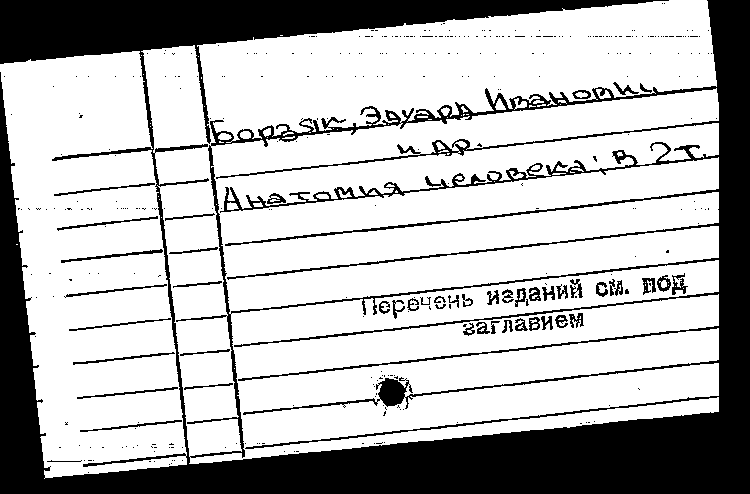 Борзяк, Эдуард Иванович
и др.
Анатомия человека: в 2 т.
Перечень изданий см. под
заглавием